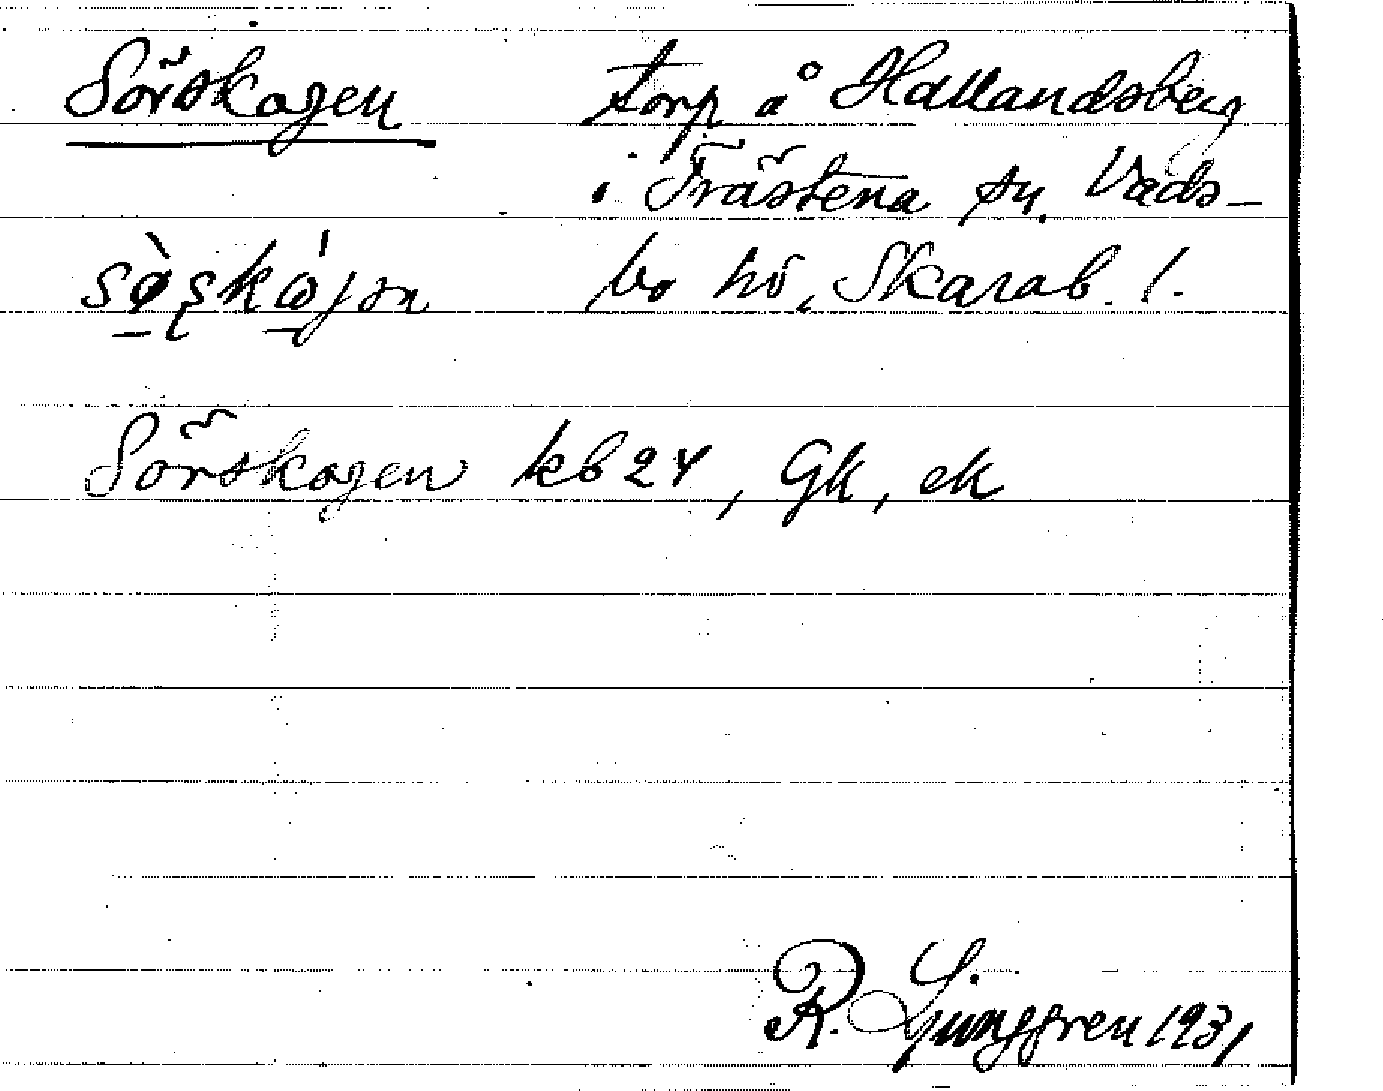 Sörskogen torp å Hallandsberg
i Fräßtena sn, Vads-
bo hd, Skarab. l.
Sörskogen kb 24, Gk, ek
R. Ljunggren 1931